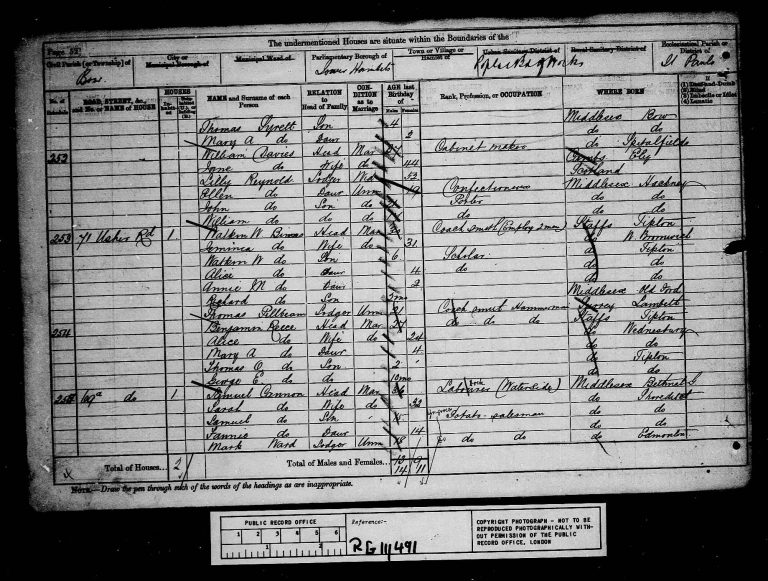 The undermentioned Houses are situate within the Boundaries of the
Page 52
Civil Parish [or Township] of
Bow
City or Municipal Borough of
Municipal Ward of
Parliamentary Borough of
Tower Hamlets
Town or Village or Hamlet of
Urban Sanitary District of
Poplar Bd of Works
Rural Sanitary District of
Ecclesiastical Parish or District of
St Pauls
No. of Schedule
ROAD, STREET, &c., and No. or NAME of HOUSE
HOUSES
NAME and Surname of each Person
RELATION to Head of Family
CONDITION as to Marriage
AGE last Birthday of
Males
Females
Rank, Profession, or OCCUPATION
WHERE BORN
If
(1) Deaf-and-Dumb
(2) Blind
(3) Imbecile or Idiot
(4) Lunatic
Thomas Syrett Son 4 Middlesex Bow
Mary A do Daur 2 do do
252 William Davies Head Mar Cabinet maker do Spitalfields
Jane do Wife do 44 Cambs Ely
Lilly Reynold Lodger Wid 52 Scotland
Ellen do Daur Unm 19 Confectioneress Middlesex Hackney
John do Son do Porter do do
William do do do do do
253 71 Usher Rd 1 Watkin W Binns Head Mar Coach smith (Employ 2 men) Staffs Tipton
Jemima do Wife do 31 do W. Bromwich
Watkin W do Son 6 Scholar do Tipton
Alice do Daur 4 do do do
Annie M do Daur 2 do do
Richard do Son 2mo Middlesex Old Ford
Thomas Lodger Unm 21 Coach smith Hammerman Surrey Lambeth
254 Benjamin Reece Head Mar do do do Staffs Tipton
Alice do Wife do 24 do Wednesbury
Mary A do Daur 4 do do
Thomas do Son 2 do Tipton
George E do do 10mo do do
255 69a do 1 Samuel Cannon Head Mar Labourer Dock (Waterside) Middlesex Bethnal G
Sarah do Wife do 32 do Shoreditch
Samuel do Son 15 Potato salesman do do
do Daur 14 do do
Mark Ward Lodger Unm 18 do do do Edmonton
Total of Houses... 2
Total of Males and Females...
14 11
NOTE.—Draw the pen through such of the words of the headings as are inappropriate.
PUBLIC RECORD OFFICE
1 2 3 4 5 6
1 2
Reference:-
RG 11/491
COPYRIGHT PHOTOGRAPH - NOT TO BE
REPRODUCED PHOTOGRAPHICALLY WITH-
OUT PERMISSION OF THE PUBLIC
RECORD OFFICE, LONDON